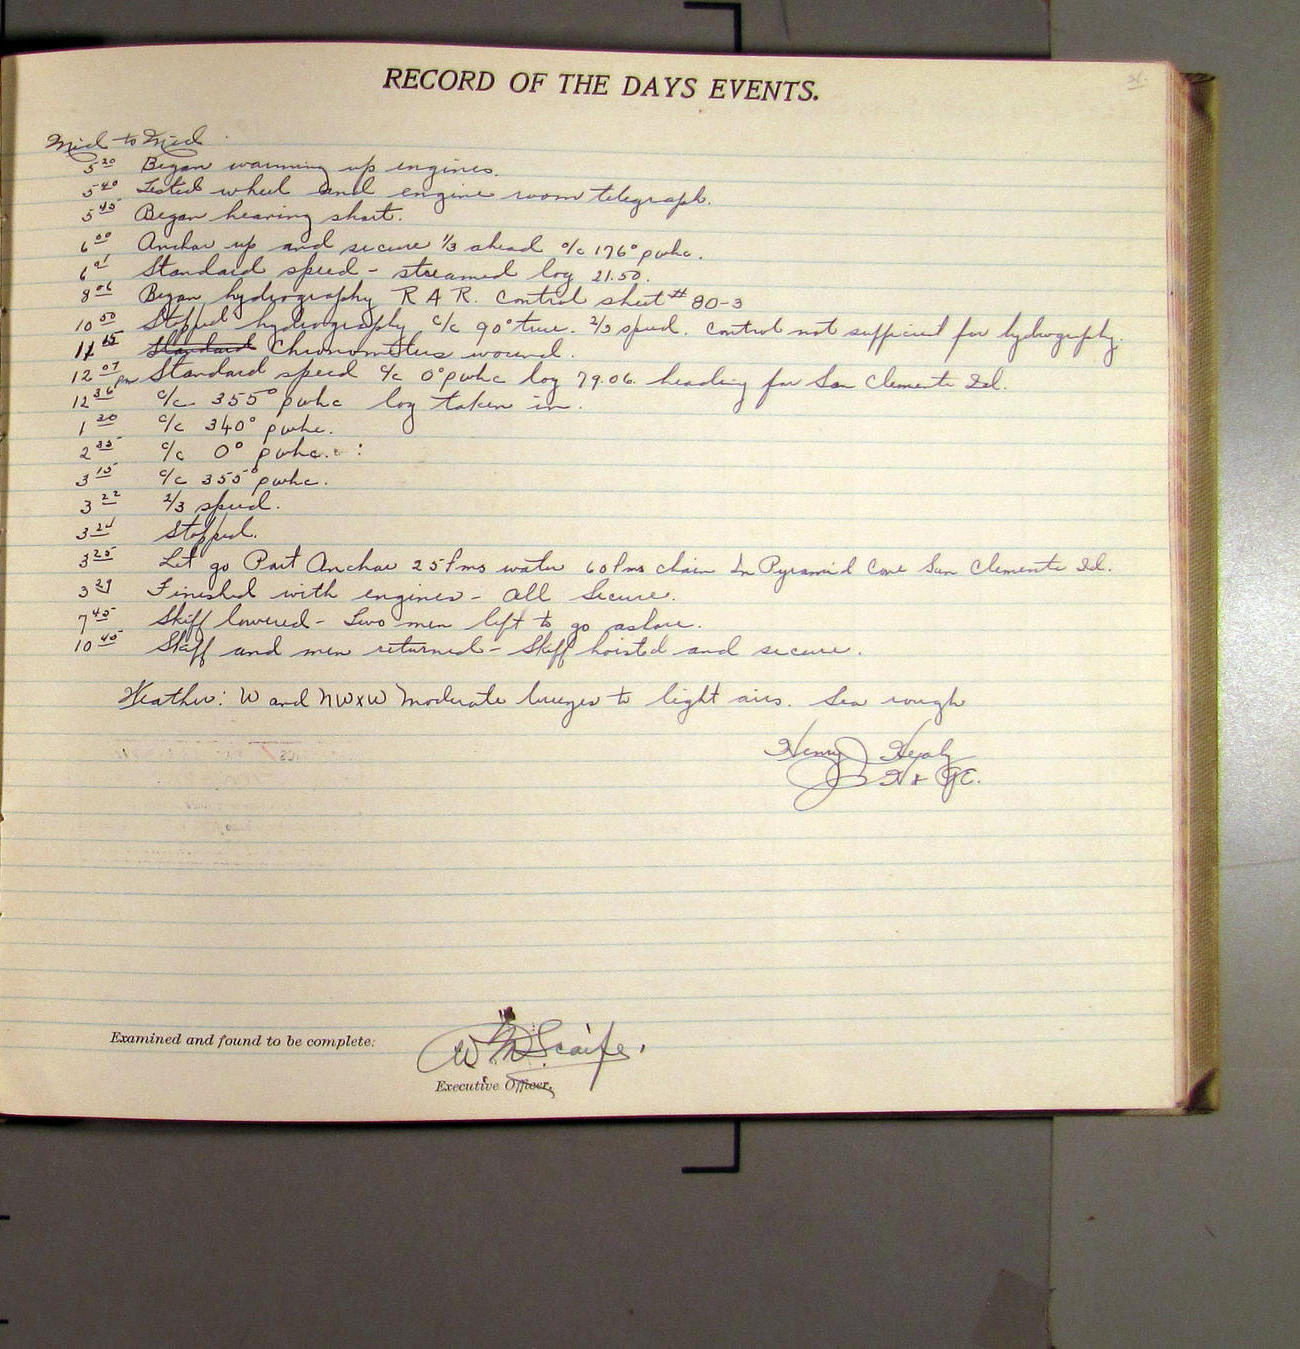 RECORD OF THE DAYS EVENTS.
Mid to Mid
5 20 Began warming up engines.
5 40 Tested wheel and engine room telegraph.
5 45 Began heaving short.
6 00 Anchor up and secure 1/3 ahead c/c 176° pwhc.
6 01 Standard speed - streamed log 21.50.
8 06 Began hydrography R A R. Control sheet # 80-3
10 50 Stopped hydrography c/c 90° true. 2/3 speed. Control not sufficient for hydrography.
11 15 Standard Chronometers wound.
12 07 pm Standard speed c/c 0° pwhc log 79.06. heading for San Clemente Isl.
12 36 c/c 355° pwhc log taken in.
1 20 c/c 340° pwhc.
2 35 c/c 0° pwhc.
3 15 c/c 355° pwhc.
3 22 2/3 speed.
3 24 Stopped.
3 25 Let go Port Anchor 25 fms water 60 fms chain In Pyramid Cove San Clemente Isl.
3 29 Finished with engines - All Secure.
7 45 Skiff lowered - Two men left to go ashore.
10 45 Skiff and men returned - Skiff hoisted and secure.
Weather: W and NWxW Moderate breezes to light airs. Sea rough
Henry Healy
H & GE.
Examined and found to be complete:
W M Scaife.
Executive Officer.